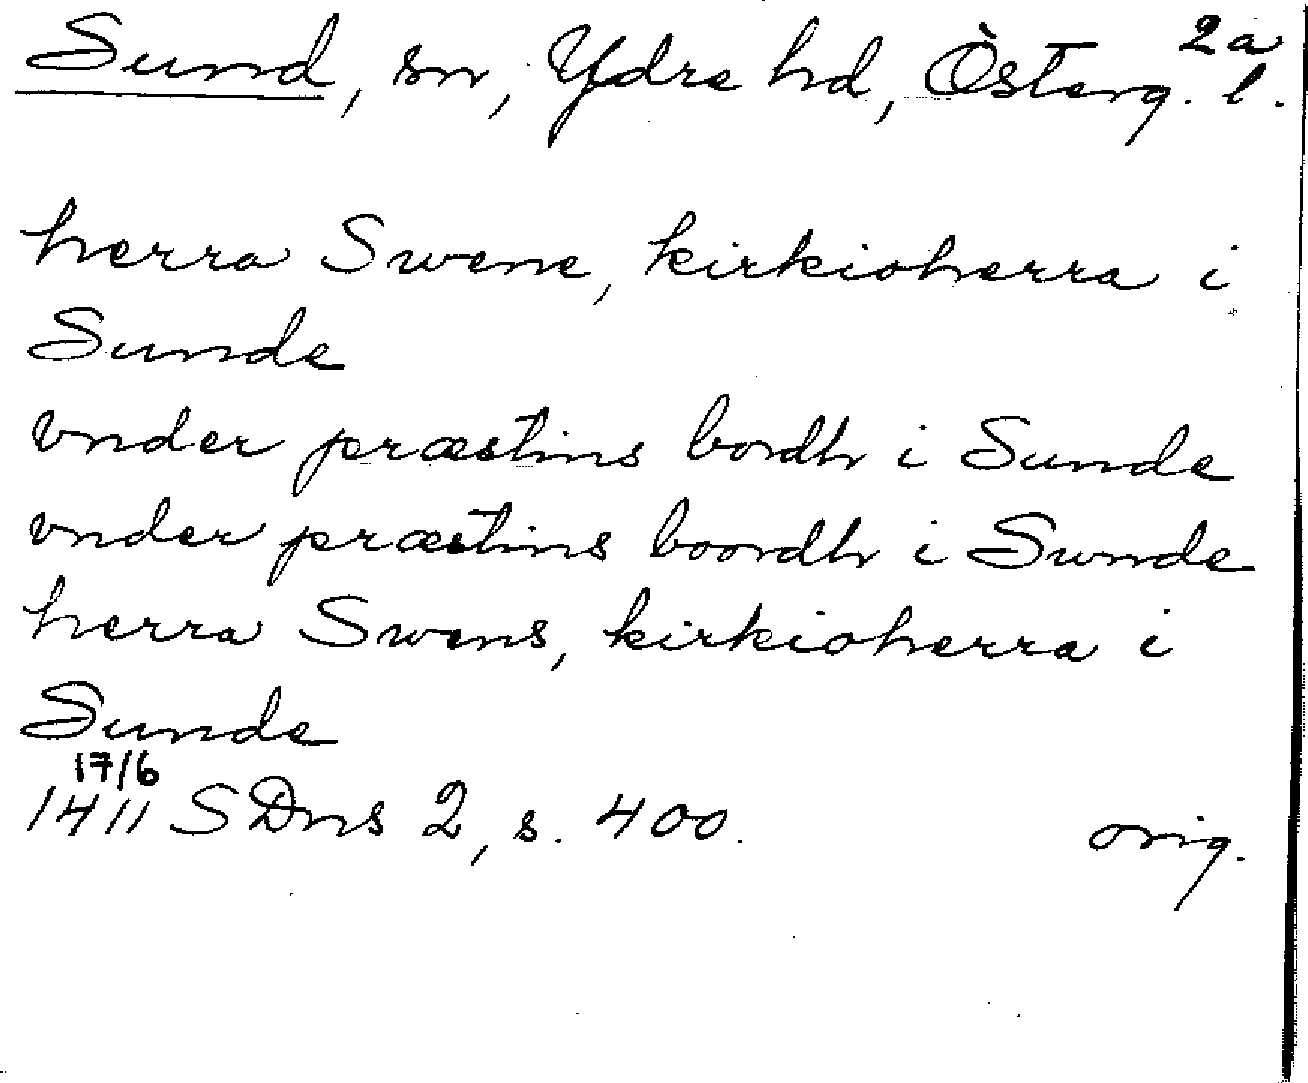 2a
Sund, sn, Ydre hd, Österg. l.
herra Swene, kirkioherra i
Sunde
vnder præstins bordh i Sunde
vnder præstins boordh i Swnde
herra Swens, kirkioherra i
Sunde
17/6
1411 SDns 2, s. 400. orig.